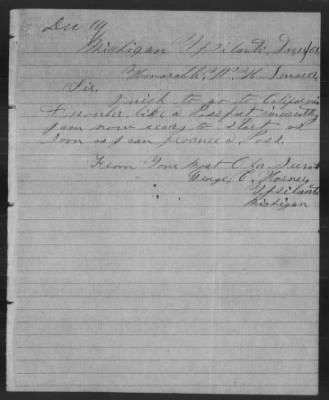 Dec 19
Michigan Ypsilanti, Dec
Honorable W. H. Seward
Sir.
I wish to go to California
I would like a Passport
I am now ready to Start as
soon as I can procure a Pass.
From Your Most Obt Servt
George C.
Ypsilanti
Michigan